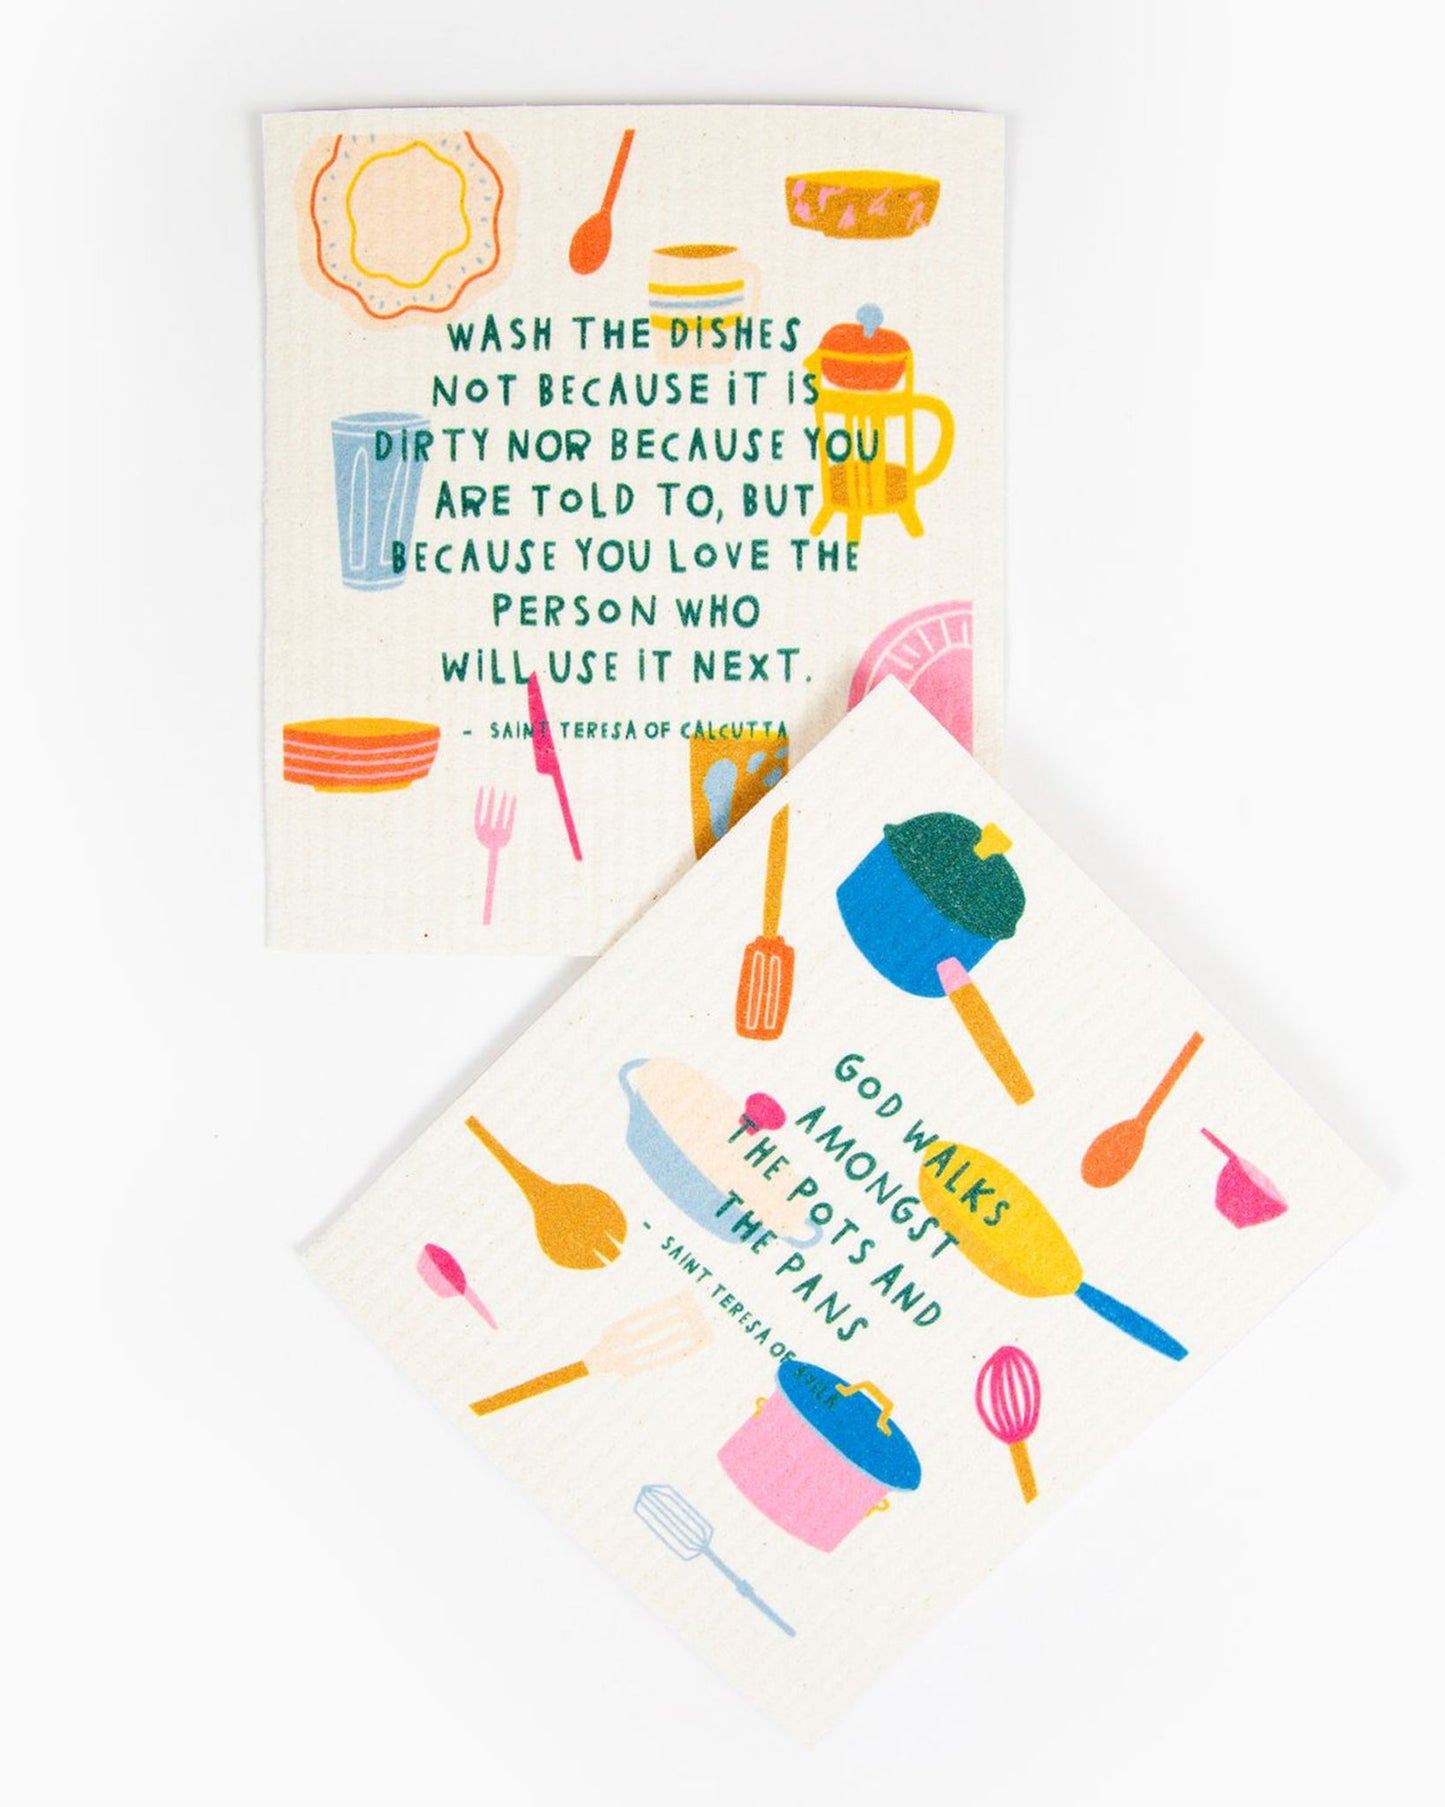 WASH THE DISHES
NOT BECAUSE IT IS
DIRTY NOR BECAUSE YOU
ARE TOLD TO, BUT
BECAUSE YOU LOVE THE
PERSON WHO
WILL USE IT NEXT.
- SAINT TERESA OF CALCUTTA
GOD WALKS
AMONGST
THE POTS AND
THE PANS
- SAINT TERESA OF AVILA